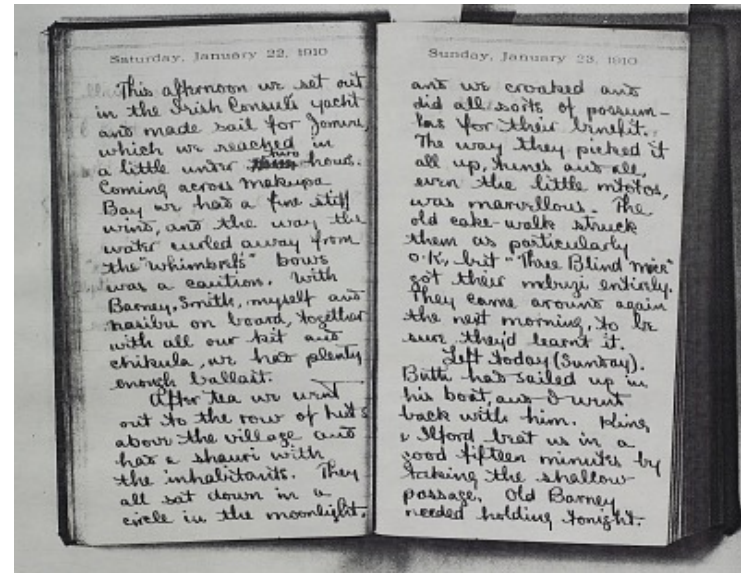 Saturday, January 22, 1910
This afternoon we set out
in the Irish Consul's yacht
and made sail for Jomvu,
which we reached in
a little under two hours.
Coming across Makupa
Bay we had a fine stiff
wind, and the way the
water curled away from
the "Whimbrel's" bows
was a caution. With
Barney, Smith, myself and
Nasibu on board, together
with all our kit and
chikula, we had plenty
enough ballast.
After tea we went
out to the row of huts
above the village and
had a shauri with
the inhabitants. They
all sat down in a
circle in the moonlight,
Sunday, January 23, 1910
and we croaked and
did all sorts of possum-
for their benefit.
The way they picked it
all up, tunes and all,
even the little mtotos,
was marvellous. The
old cake-walk struck
them as particularly
O.K, but "Three Blind Mice"
got their mbuzi entirely.
They came around again
the next morning, to be
sure they'd learnt it.
Left today (Sunday).
had sailed up in
his boat, and I went
back with him. King
& Ilford beat us in a
good fifteen minutes by
taking the shallow
passage. Old Barney
needed holding tonight.